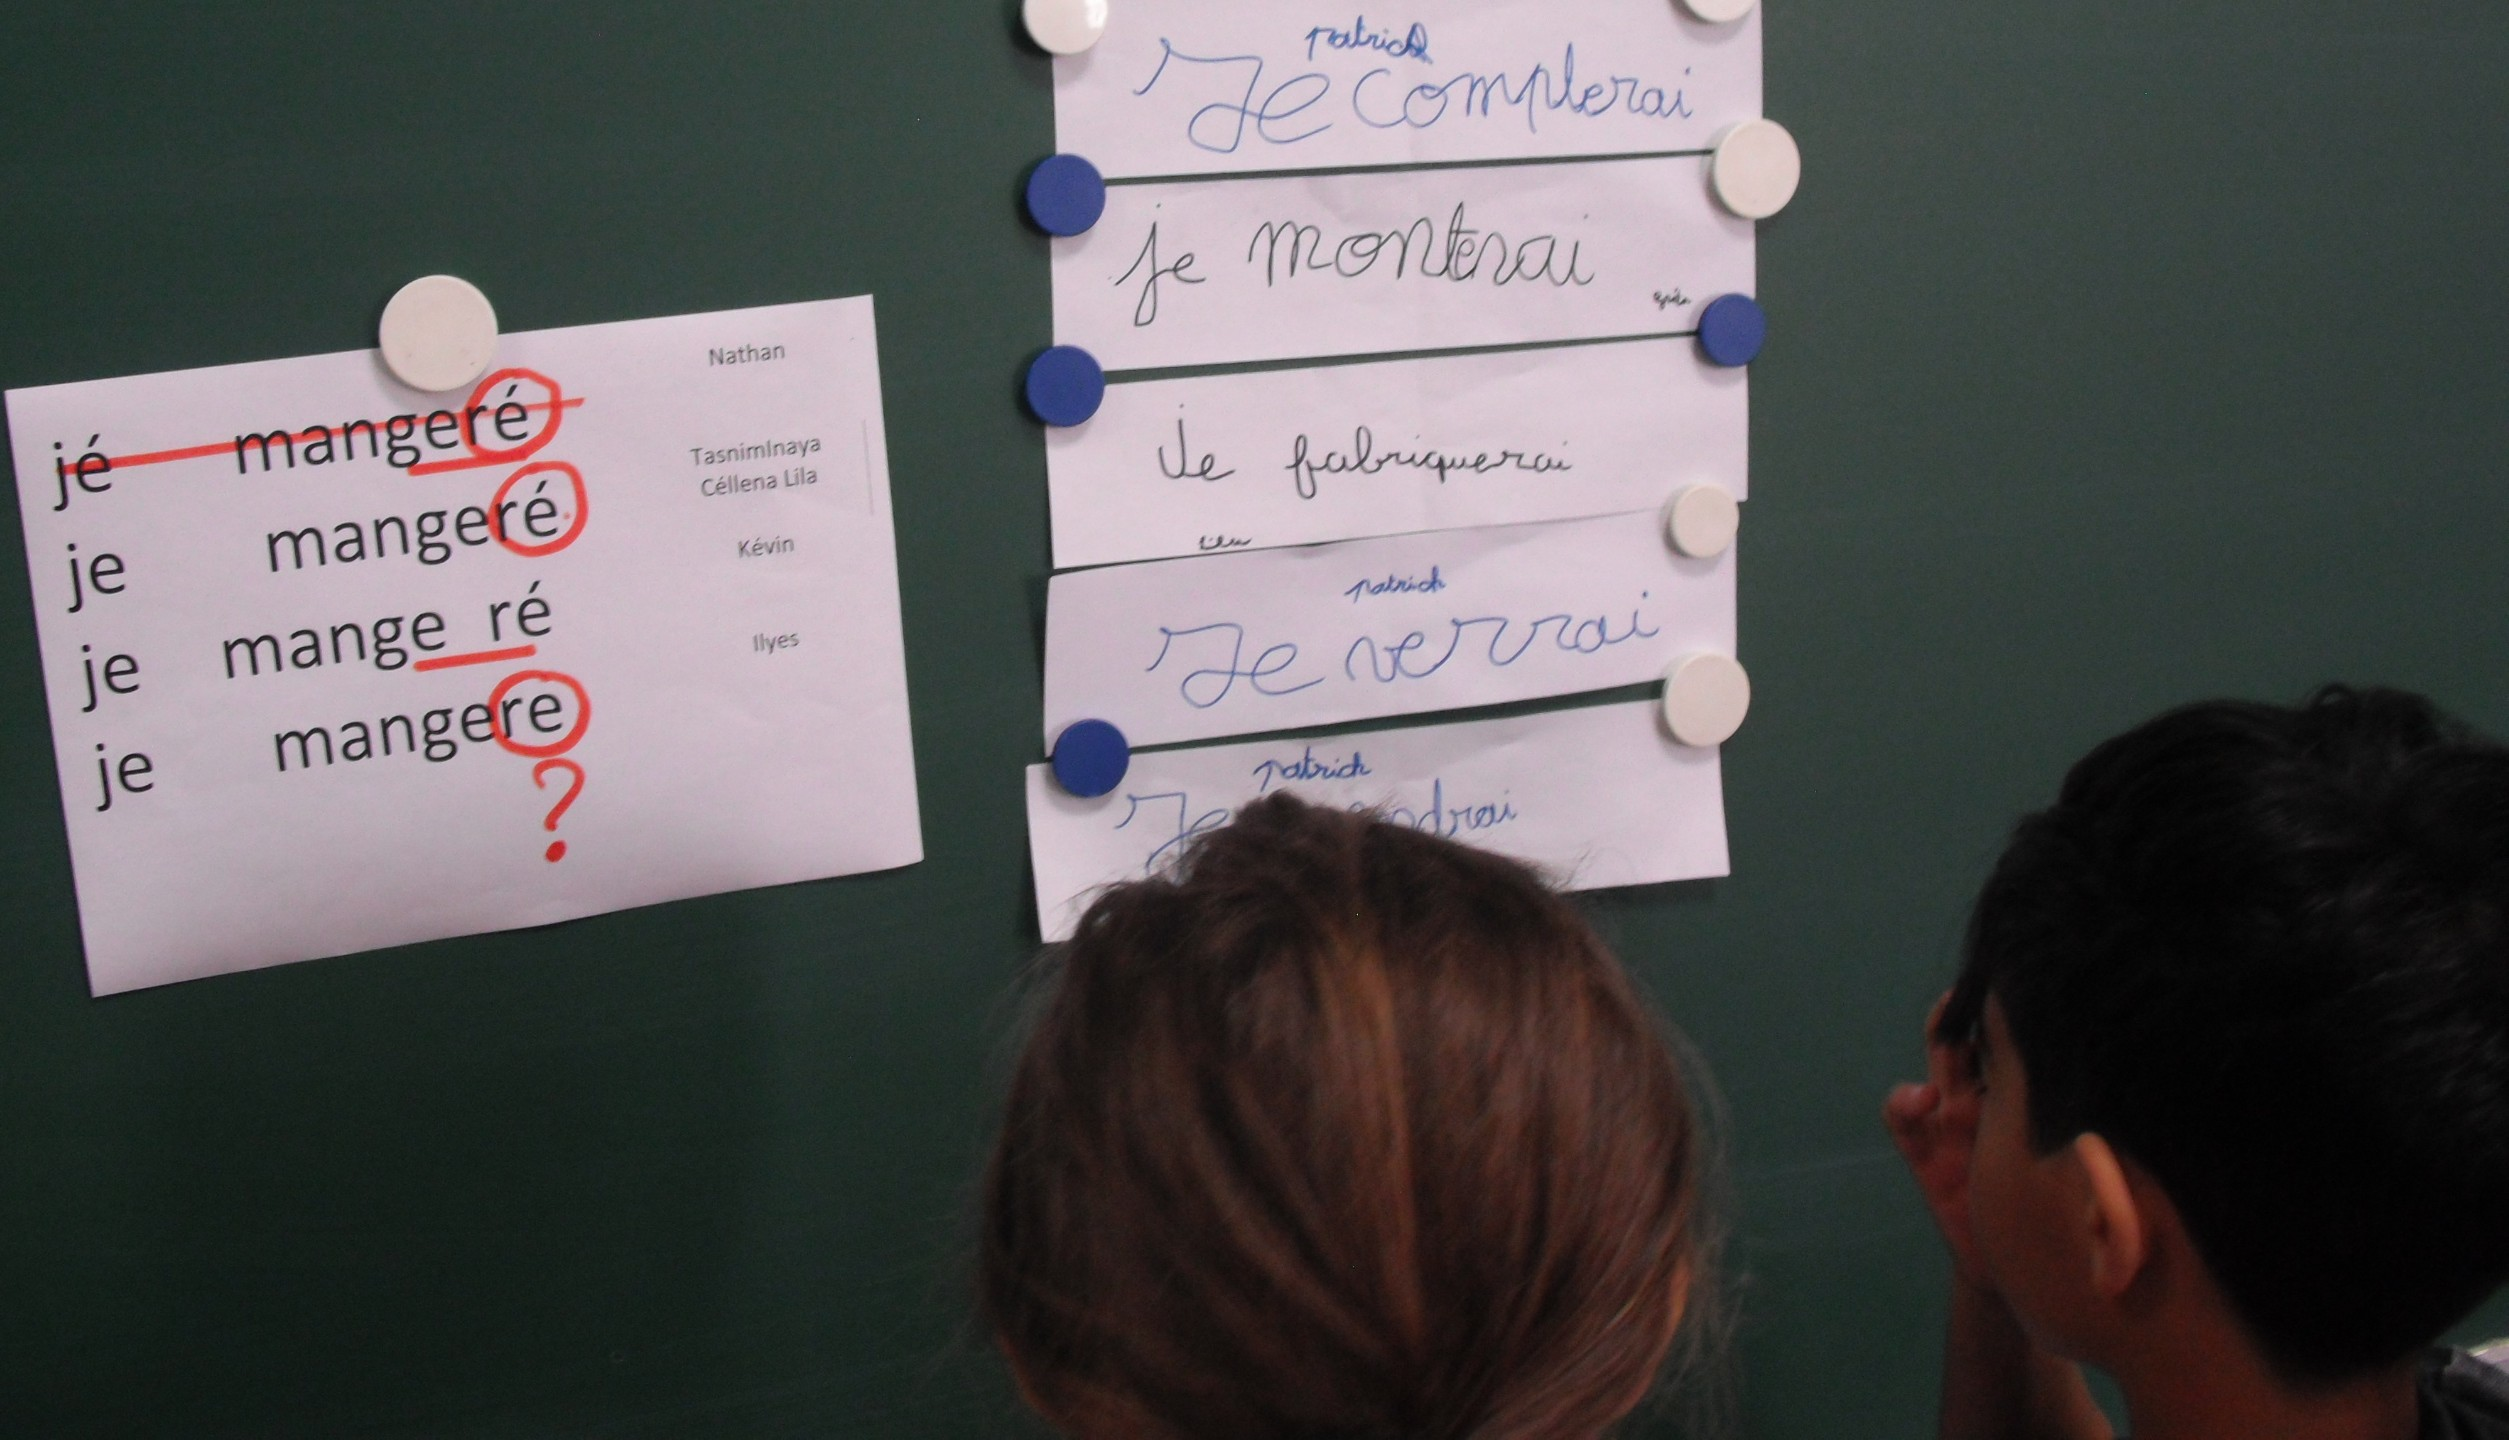 Nathan
jé mangeré
TasnimInaya
Céllena Lila
je mangeré
Kévin
je mange ré
Ilyes
je mangere
?
patrick
Je complerai
je monterai
Je fabriquerai
patrick
Je verrai
patrick
Je